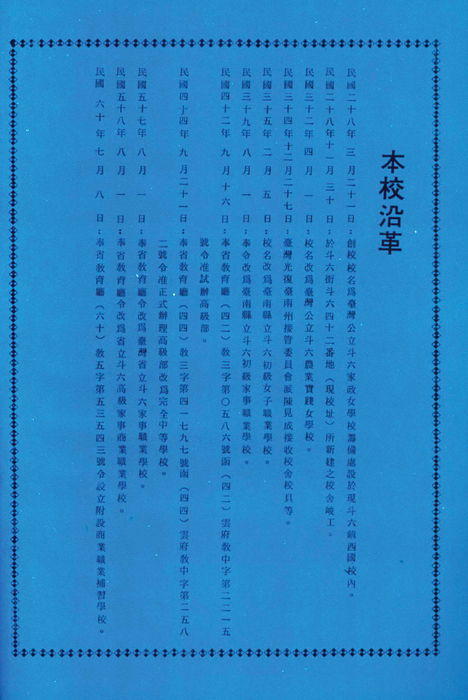 本校沿革
民國二十八年三月二十一日：創校校名為臺灣公立斗六家政女學校籌備處設於現斗六鎮西國校內。
民國二十八年十一月三十日：於斗六街斗六四十二番地（現校址）所新建之校舍竣工。
民國三十二年四月一日：校名改為臺灣公立斗六農業實踐女學校。
民國三十四年十二月二十七日：臺灣光復臺南州接管委員會派陳見成接收校舍校具等。
民國三十五年二月五日：校名改為臺南縣立斗六初級女子職業學校。
民國三十九年八月一日：奉令改為臺南縣立斗六初級家事職業學校。
民國四十二年九月十六日：奉省教育廳（四二）教三字第〇五八六號函（四二）雲府教中字第二二一五
號令准試辦高級部。
民國四十四年九月二十一日：奉省教育廳（四四）教三字第四一七九七號函（四四）雲府教中字第二五八
二號令准正式辦理高級部改為完全中等學校。
民國五十七年八月一日：奉省教育廳令改為臺灣省立斗六家事職業學校。
民國五十八年八月一日：奉省教育廳令改為省立斗六高級家事商業職業學校。
民國六十年七月八日：奉省教育廳（六十）教五字第五三五四三號令設立附設商業職業補習學校。